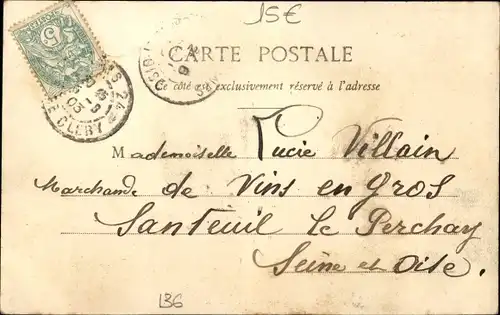 15€
CARTE POSTALE
Ce côté est exclusivement réservé à l'adresse
Mademoiselle Lucie Villain
Marchande de Vins en Gros
Santeuil le Perchay
Seine et Oise.
R. DE CLERY
136